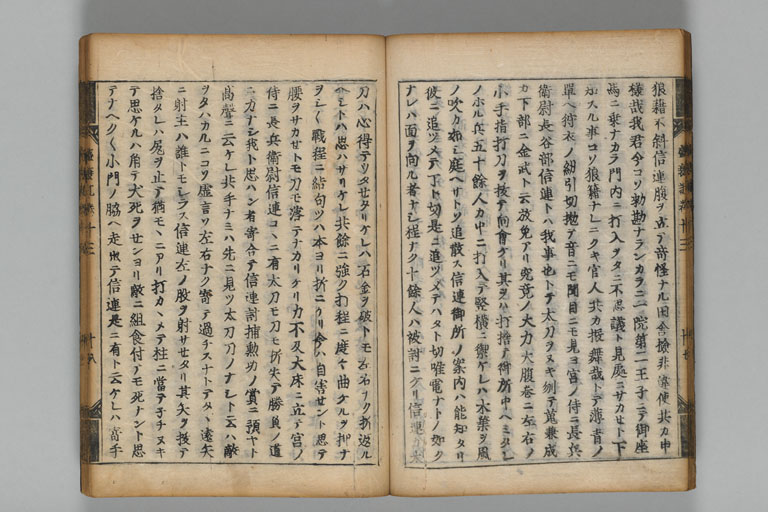 狼藉不斜信連腹ヲ立テ奇怪ナル田舎撿非違使共カ申
様哉我君今コソ勅勘ナランカラニ一院第二王子ニテ御座
馬ニ乗ナカラ門内ニ打入ヲタニ不思議ト見處ニサカセト下
知スル事コソ狼藉ナレニクキ官人共カ振舞哉トテ薄青ノ
單ヘ狩衣ノ紛引切抛テ音ニモ聞目ニモ見ヨ宮ノ侍ニ長兵
衛尉長谷部信連トハ我事也トテ太刀ヲヌキ刎テ蒐兼成
カ下部ニ金武ト云放免アリ究竟ノ大力大腹巻ニ左右ノ
小手指打刀ヲ抜テ向會ケリ其ヲハ打捨テ御所中ヘミタレ
ノホル兵五十餘人カ中ニ打入テ竪横ニ禦ケレハ木葉ヲ風
ノ吹カ如シ庭ヘサトソ追散ス信連御所ノ案内ハ能知タリ
彼ニ追ツメテ丁ト切是ニ追ツメテハタト切唯電ナトノ如ク
ナレハ面ヲ向ル者ナシ程ナク十餘人ハ被討ニケリ信連カ
刀ハ心得テウタセタリケレハ石金ヲ破トモ左右ナク折返ル
ヘシトハ思ハサリケレ共餘ニ強ク打程ニ度々曲ケルヲ押ナ
ヲシ〱戰程ニ結句ツハ本ヨリ折ニケリ今ハ自害セント思テ
腰ヲサカセトモ刀モ落テナカリケリ力不及大床ニ立テ宮ノ
侍ニ長兵衛尉信連コヽニ有太刀モ刀モ折失テ勝負ノ道
ニ力ナシ我ト思ハン者寄合テ信連討捕勲功ノ賞ニ預ヤト
高聲ニ云ケレ共手ナミハ先ニ見ツ太刀刀ノナシト云ハ敵
ヲタハカルニコソ虚言ソ左右ナク寄テ過チスナトテタヽ遠矢
ニ射主ハ誰トモシラス信連左ノ股ヲ射サセタリ其矢ヲ抜テ
捨タレハ尻ヲ止テ猶モヽニアリ打カヽメテ柱ニ當テ子チヌキ
テ思ケルハ角テ犬死ヲセンヨリ敵ニ組食付テモ死ナント思
テナヘク〱小門ノ脇ヘ走出テ信連是ニ有ト云ケレハ寄手